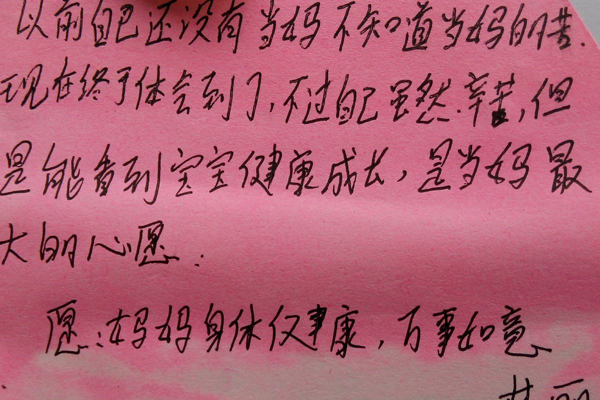 以前自己还没有当妈不知道当妈的苦.
现在终于体会到了,不过自己虽然辛苦,但
是能看到宝宝健康成长,是当妈最
大的心愿.
愿:妈妈身体健康,万事如意